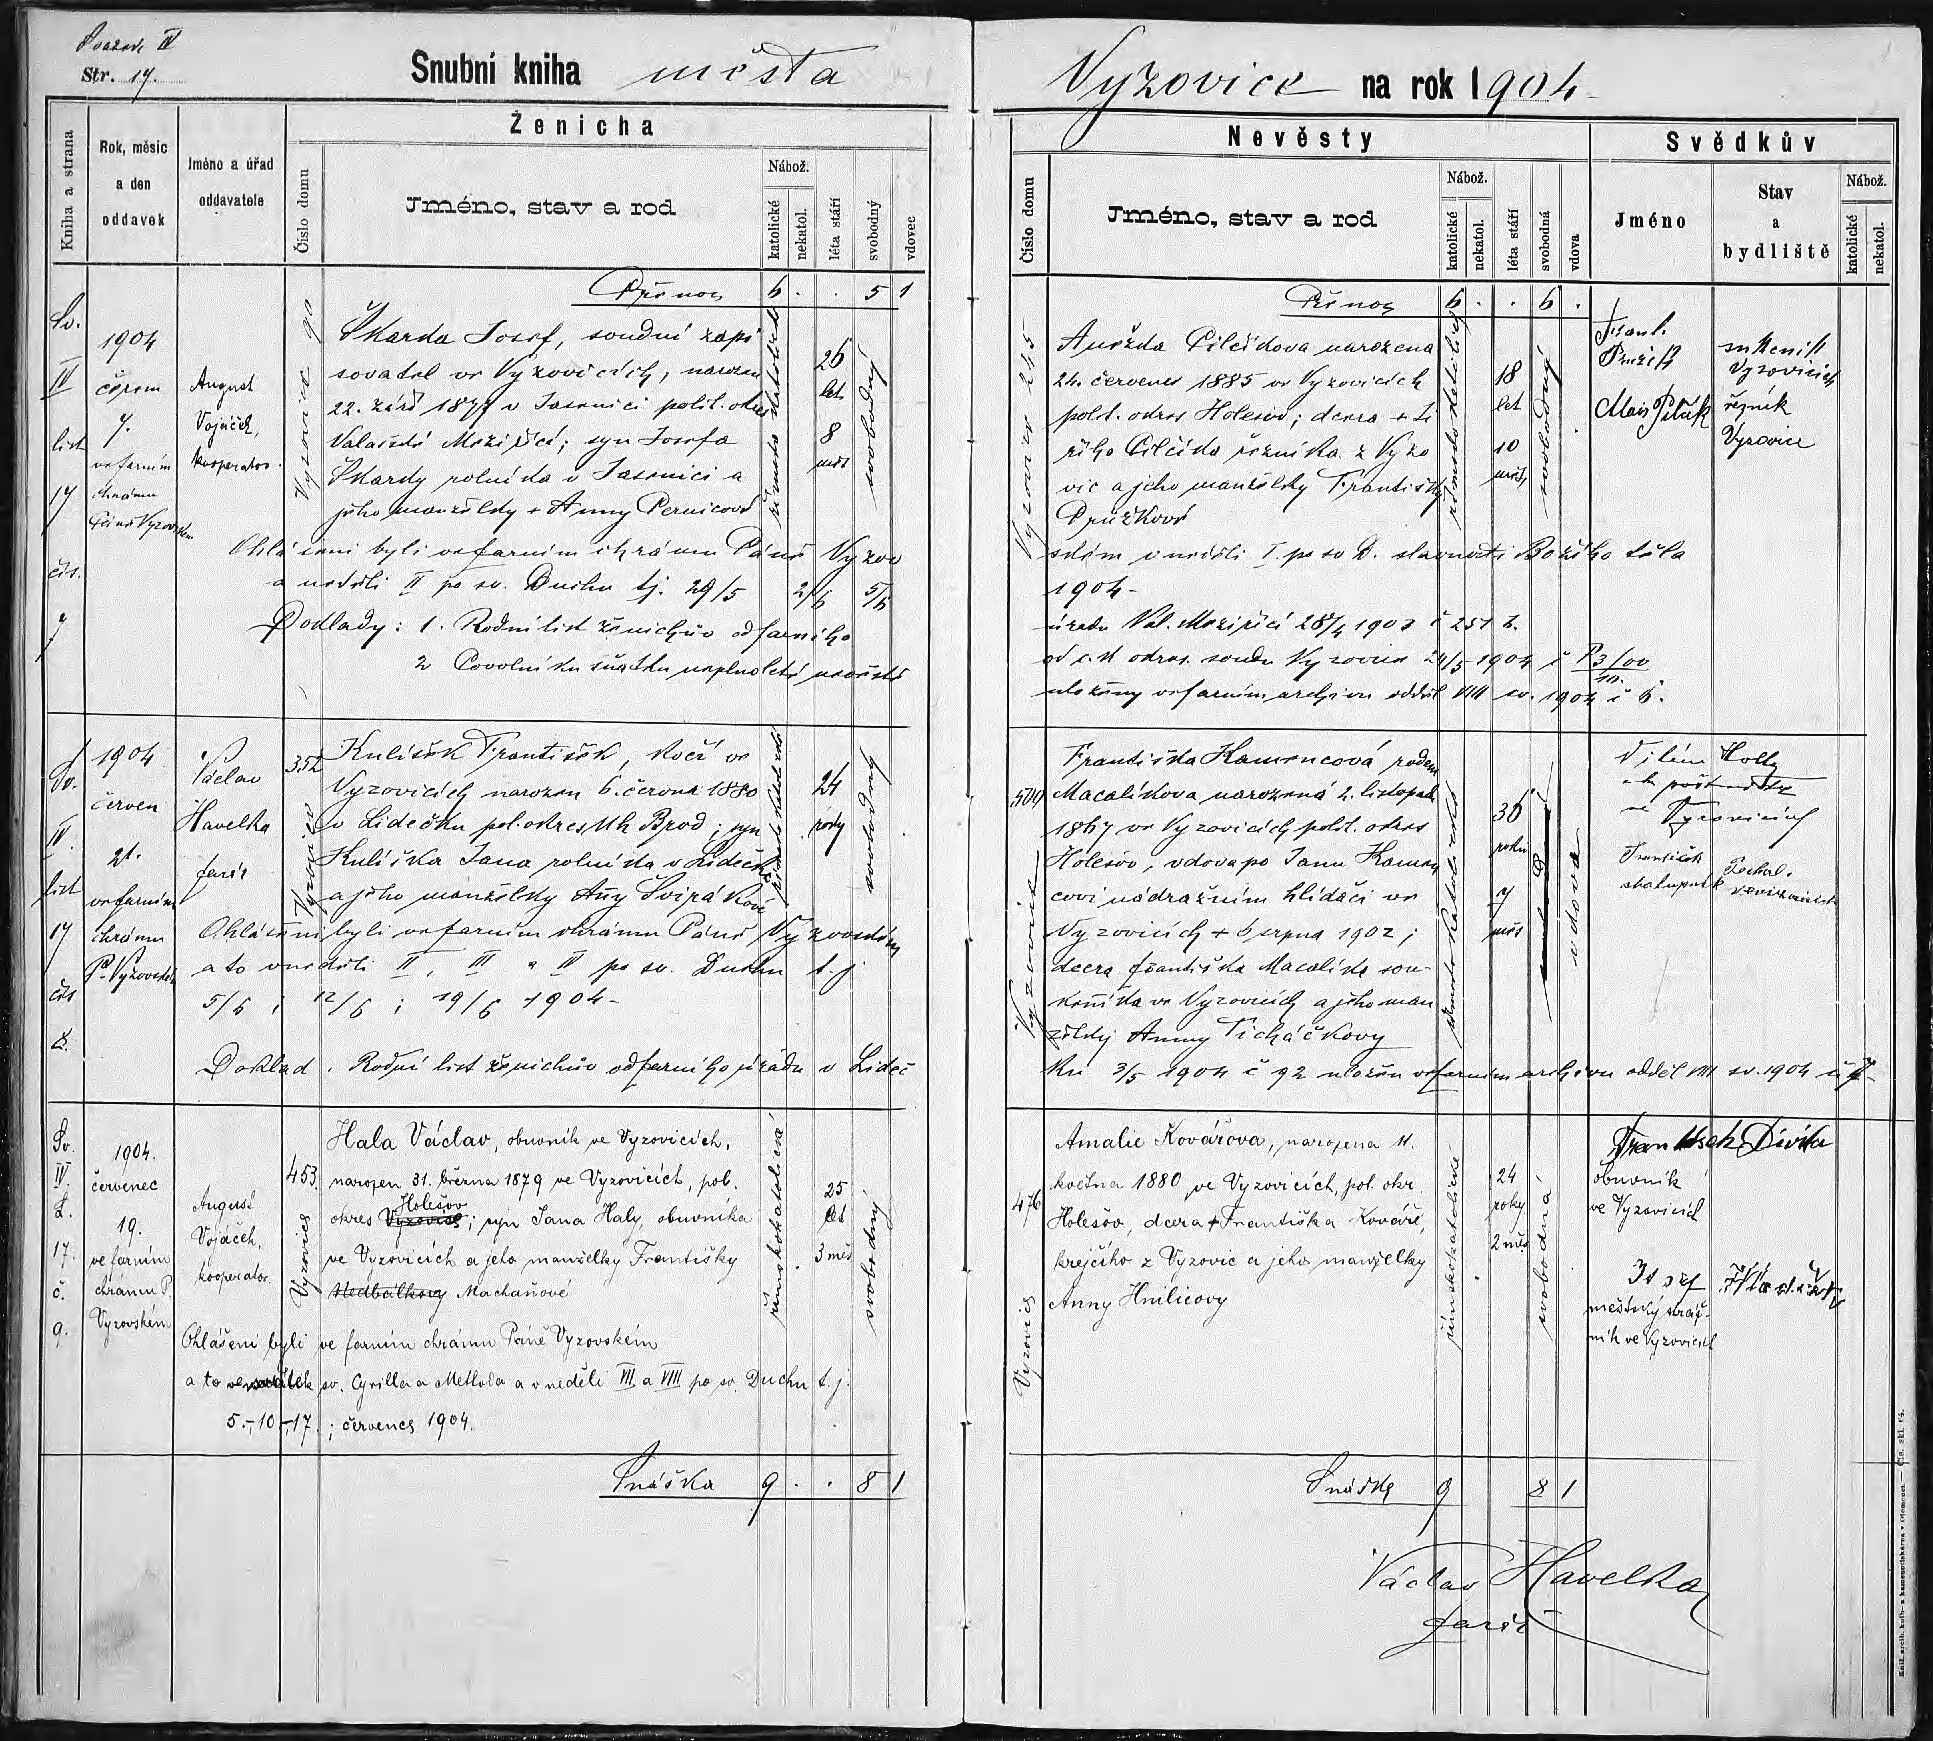 Svazek IV
Str. 17.
Snubní kniha města
Vyzovice na rok 1904
Kniha a strana
Rok, měsíc a den oddavek
Jméno a úřad oddavatele
Ženicha
Číslo domu
Jméno, stav a rod
Nábož.
katolické
nekatol.
léta stáří
svobodný
vdovec
Nevěsty
Číslo domu
Jméno, stav a rod
Nábož.
katolické
nekatol.
léta stáří
svobodná
vdova
Svědkův
Jméno
Stav
a
bydliště
Nábož.
katolické
nekatol.
Přenos 6 . . 5 1
Přenos 6 . . 6 .
Sv.
IV
list
17
čís.
7
1904
červen
7.
ve farním
chrámu
Páně Vyzovském
August
Vojáček,
kooperator.
Vyzovice 90
Škarda Josef, soudní zapi
sovatel ve Vyzovicích, narozen
22. září 1877 v Jasenici polit. okres
Valašské Meziříčí; syn Josefa
Škardy rolníka v Jasenici a
jeho manželky + Anny Pernicové
římsko katolické
26
let
8
měs
svobodný
Vyzovice 245
Anežka Pilčíkova narozena
24. červenec 1885 ve Vyzovicích
polit. okres Holešov; dcera + Ji
řího Pilčíka řezníka z Vyzo
vic a jeho manželky Františky
Pružkové
římsko katolický
18
let
10
měs,
svobodný
Frant.
Pružek
Vyzovicích
Alois Pilčík
řezník
Vyzovice
Ohlášeni byli ve farním chrámu Páně Vyzov
ském v neděli I. po sv D. slavnosti Božího těla
a neděli II po sv. Duchu tj. 29/5 2/6 5/6
1904 -
Podlady: 1. Rodní list ženichův od farního
úřadu Val. Meziříčí 28/4 1903 č 251 z.
2 Povolení ku sňatku neplnoleté nevěstě
od c.k okres. soudu Vyzovice 24/5 1904 č P 3/00
10.
uloženy ve farním archivu odděl VIII sv. 1904 č 6.
Sv.
IV.
list
17
čís
8.
1904
červen
21.
ve farním
chrámu
P. Vyzovském
Václav
Havelka
farář
352
Vyzovice
Kulíšek František, kočí ve
Vyzovicích narozen 6. června 1880
v Lidečku pol. okres Uh Brod; syn
Kulíška Jana rolníka v Lidečku
a jeho manželky Anny Svirákové
římsko katolické
24
roky
svobodný
504
Vyzovice
Františka Kamencová rodem
Macalíkova narozená 2. listopadu
1867 ve Vyzovicích polit. okres
Holešov, vdova po Janu Kamen
covi nádražním hlídači ve
Vyzovicích + 6 srpna 1902;
dcera Františka Macalíka sou-
keníka ve Vyzovicích a jeho man
želky Anny Ticháčkovy
římsko katolická
36
roků
7
měs
vdova
Vilém Holly
Vyzovicích
František Zechal.
Ohlášeni byli ve farním chrámu Páně Vyzovském
a to v neděli II, III a IV po sv. Duchu t. j.
5/6 ; 12/6 ; 19/6 1904 -
Doklad. Rodní list ženichův od farního úřadu v Lideč
ku 3/5 1904 č 92 uložen ve farním archivu odděl VIII sv. 1904 č 7-
Sv.
IV.
L.
17.
č.
9.
1904.
červenec
19.
ve farním
chrámu P.
Vyzovském
August
Vojáček,
kooperator.
453.
Vyzovice
Hala Václav, obuvník ve Vyzovicích,
narozen 31. března 1879 ve Vyzovicích, pol.
Holešov
okres Vyzovice; syn Jana Haly, obuvníka
ve Vyzovicích a jeho manželky Františky
Nedbálkovy Machaňové
římskokatolické
25
let
3 měs
svobodný
476
Vyzovice
Amalie Kovářova, narozena 11.
května 1880 ve Vyzovicích, pol. okr.
Holešov, dcera + Františka Kováře,
krejčího z Vyzovic a jeho manželky
Anny Hnilicovy
římskokatolické
24
roky
2 měs
svobodná
Frantisek Divila
obuvník
ve Vyzovicích
Josef
městský stráž-
ník ve Vyzovicích
Ohlášeni byli ve farním chrámu Páně Vyzovském
a to ve svátek sv. Cyrilla a Methoda a v neděli VII a VIII po sv. Duchu t. j.
5.-, 10.-, 17. ; červenec 1904.
Snáška 9 . . 8 1
Snáška 9 8 1
Václav Havelka
farář